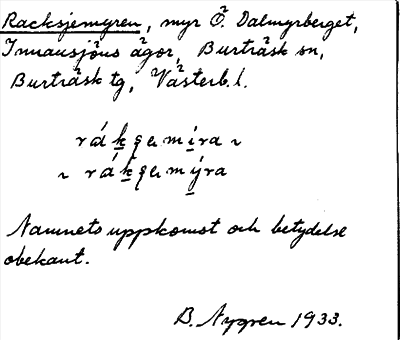 Racksjemyren, myr Ö. Dalmyrberget,
Innansjöns ägor, Burträsk sn,
Burträsk tg, Västerb. l.
rákʂemi̱ra ~
~ rákʂemy̱ra
Namnets uppkomst och betydelse
obekant.
B. Nygren 1933.